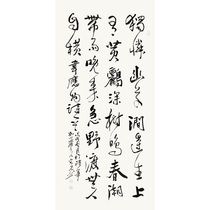 獨憐幽草澗邊生上
有黄鸝深樹鳴春潮
帶雨晚来急野渡無人
自横 韋應物詩